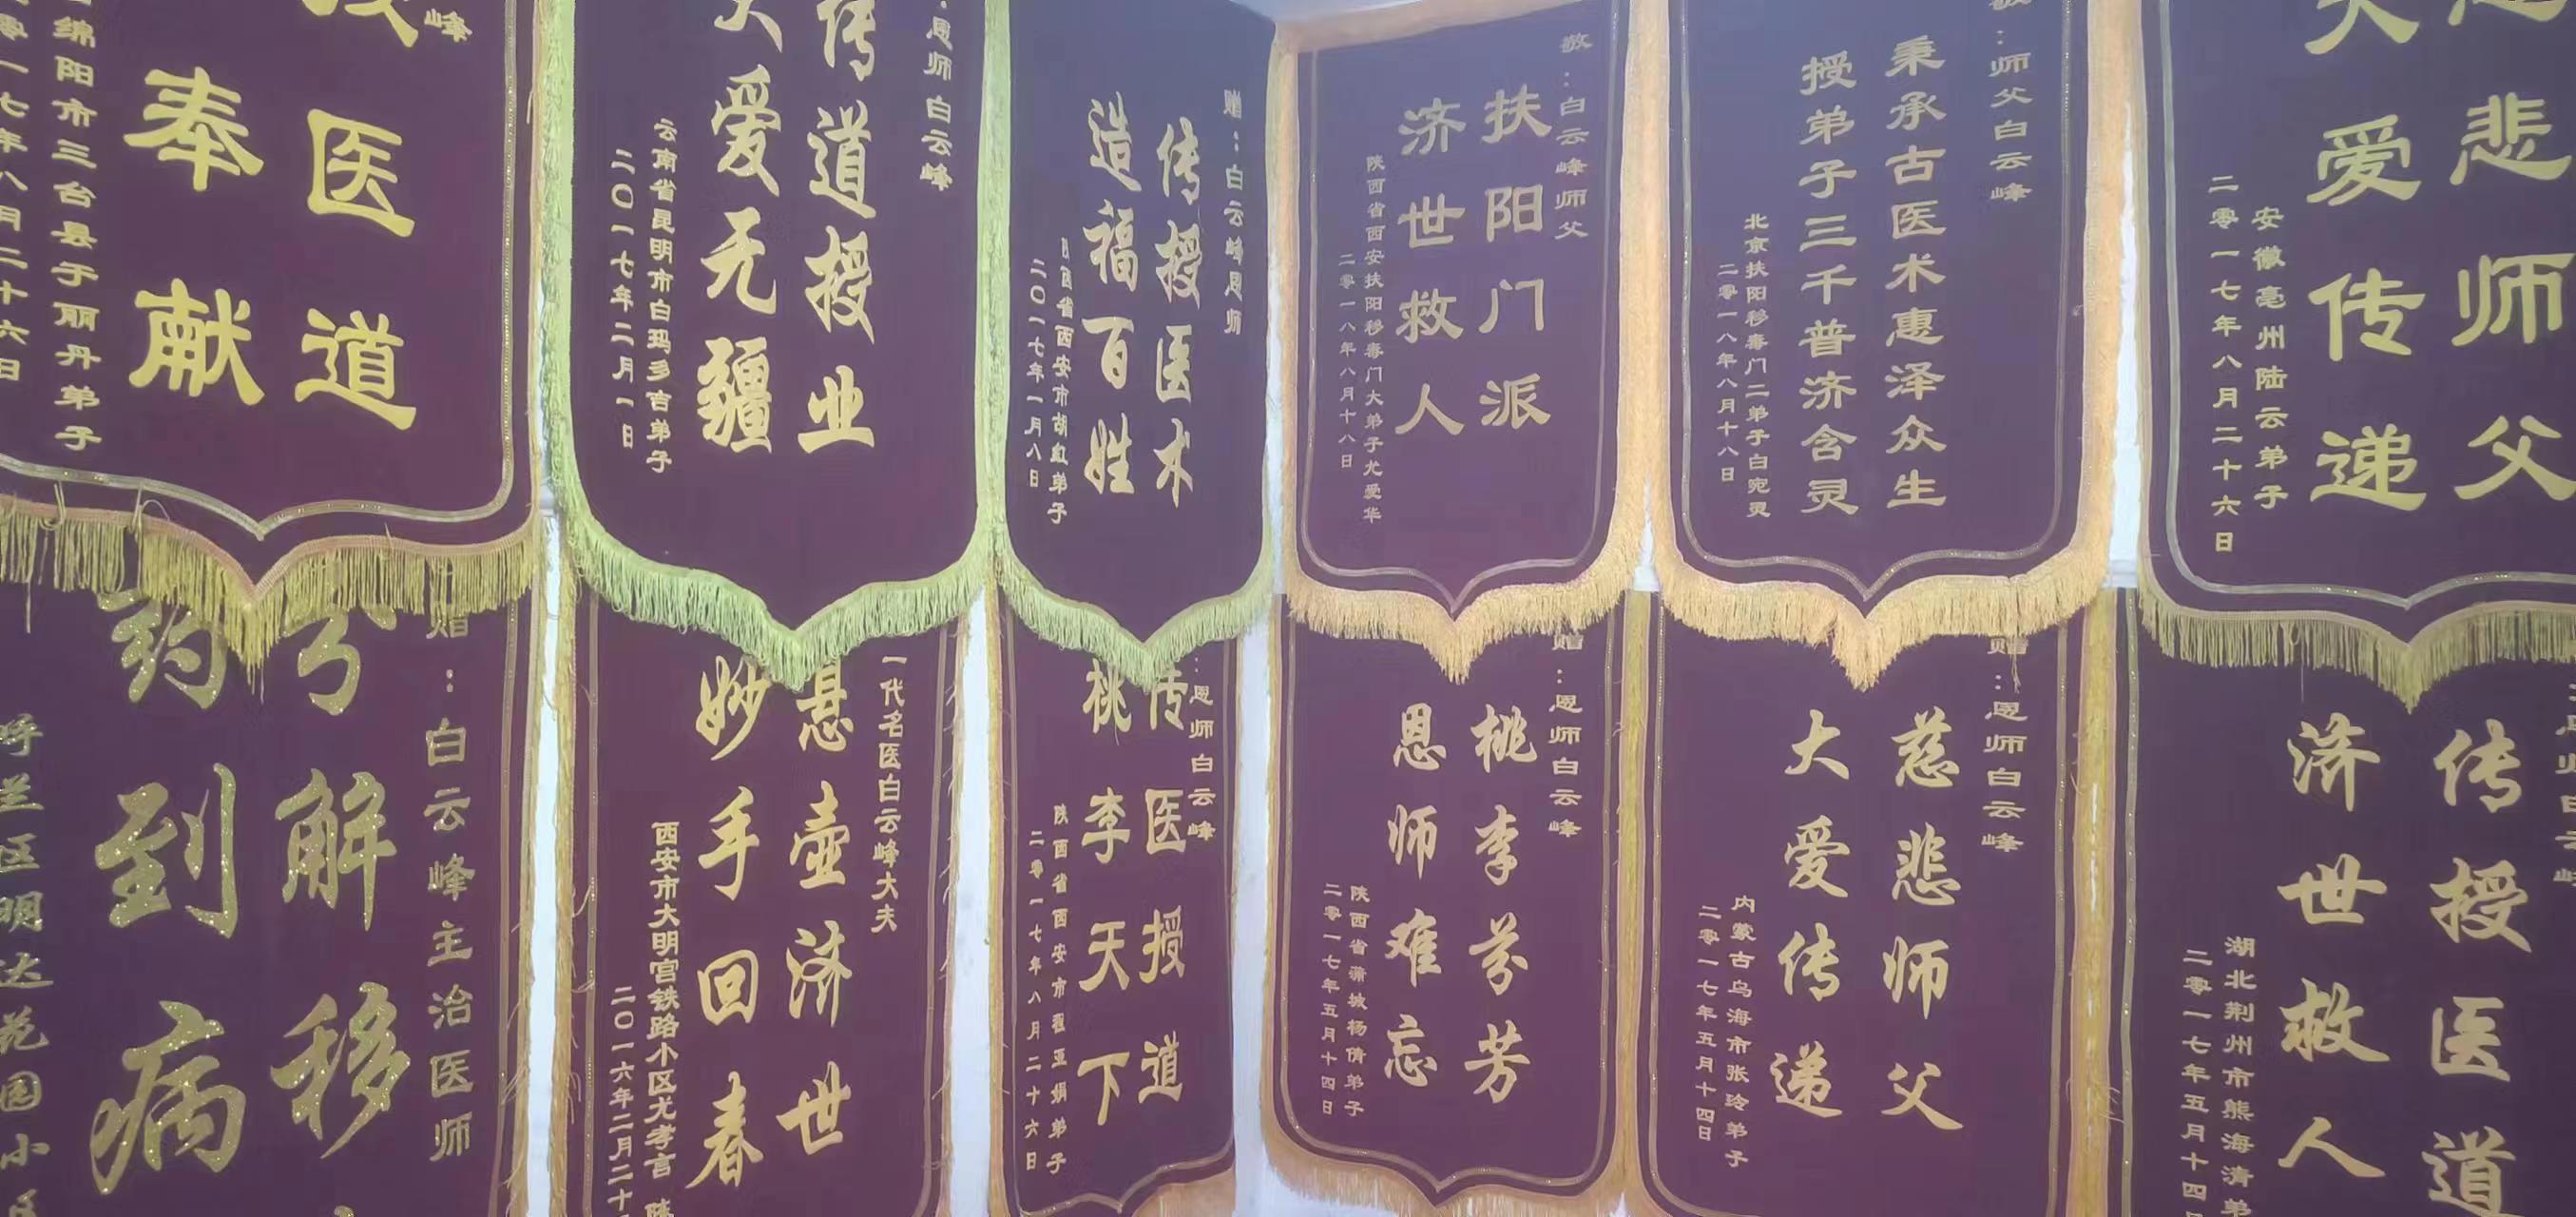 峰
医道
奉献
绵阳市三台县于丽丹弟子
零一七年八月二十六日
恩师白云峰
传道授业
大爱无疆
云南省昆明市白玛多吉弟子
二〇一七年二月一日
赠：白云峰恩师
传授医术
造福百姓
省西安市胡虹弟子
二〇一七年一月八日
敬：白云峰师父
扶阳门派
济世救人
陕西省西安扶阳移毒门大弟子尤爱华
二零一八年八月十八日
敬：师父白云峰
秉承古医术惠泽众生
授弟子三千普济含灵
北京扶阳移毒门二弟子白宛灵
二零一八年八月十八日
悲师父
大爱传递
安徽亳州陆云弟子
二零一七年八月二十六日
赠：白云峰主治医师
解移
药到病
呼兰区明达花园小区
一代名医白云峰大夫
悬壶济世
妙手回春
西安市大明宫铁路小区尤孝言
二〇一六年二月二十
：恩师白云峰
传医授道
桃李天下
陕西省西安市程亚娟弟子
二零一七年八月二十六日
赠：恩师白云峰
桃李芬芳
恩师难忘
陕西省蒲城杨倩弟子
二零一七年五月十四日
赠：恩师白云峰
慈悲师父
大爱传递
内蒙古乌海市张玲弟子
二零一七年五月十四日
恩师白云峰
传授医道
济世救人
湖北荆州市熊海清弟
二零一七年五月十四